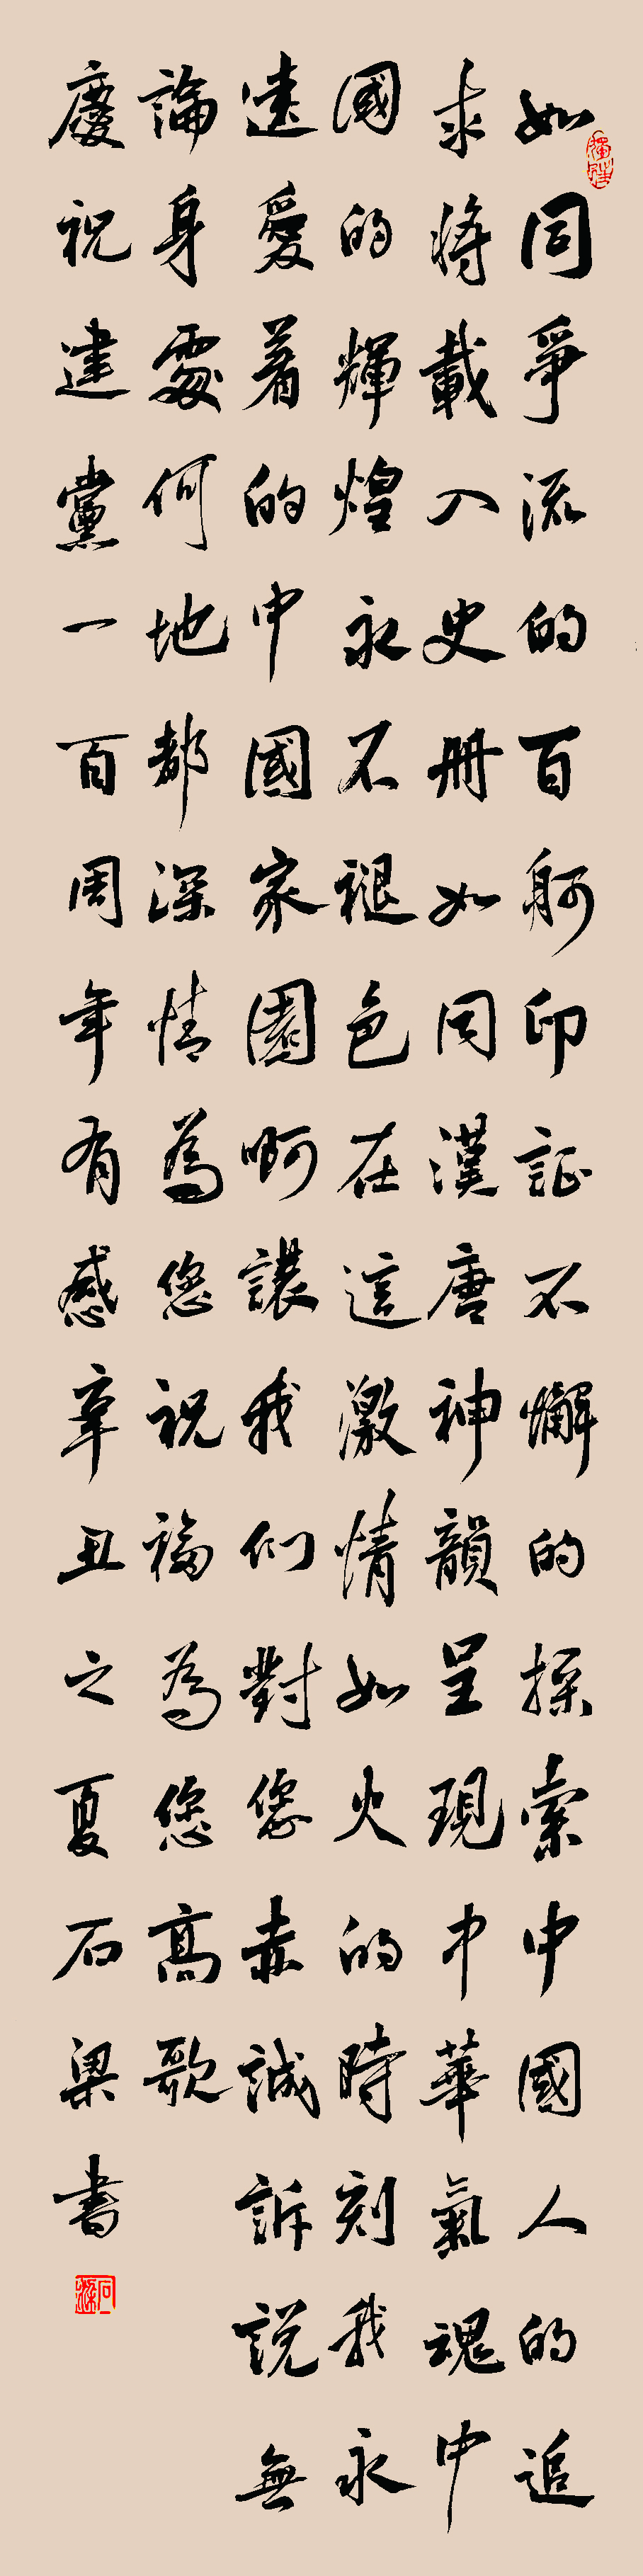 如同爭流的百舸印証不懈的探索中國人的追
求將載入史冊如同漢唐神韻呈現中華氣魂中
國的輝煌永不褪色在這激情如火的時刻我永
遠愛着的中國家園啊讓我們對您赤誠訴說無
論身處何地都深情為您祝福為您高歌
慶祝建黨一百周年有感辛丑之夏石梁書